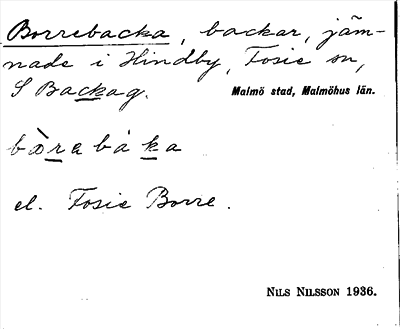 Borrebacka, backar, jäm-
nade i Hindby, Fosie sn,
S Backag. Malmö stad, Malmöhus län.
bɔ̀rabáka
el. Fosie Borre.
NILS NILSSON 1936.